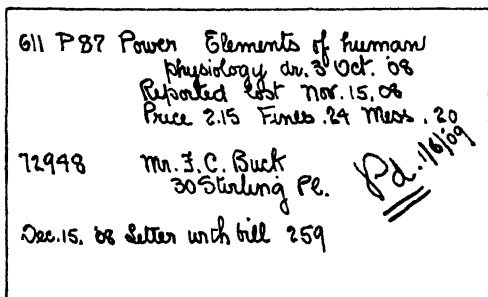 611 P87 Power Elements of human
physiology dr. 3 Oct. '08
Reported lost Nov. 15, 08
Price 2.15 Fines .24 Mess. .20
72948 Mr. F. C. Buck
30 Sterling Pl.
Pd. 1/6/09
Dec. 15. 08 Letter with bill 259